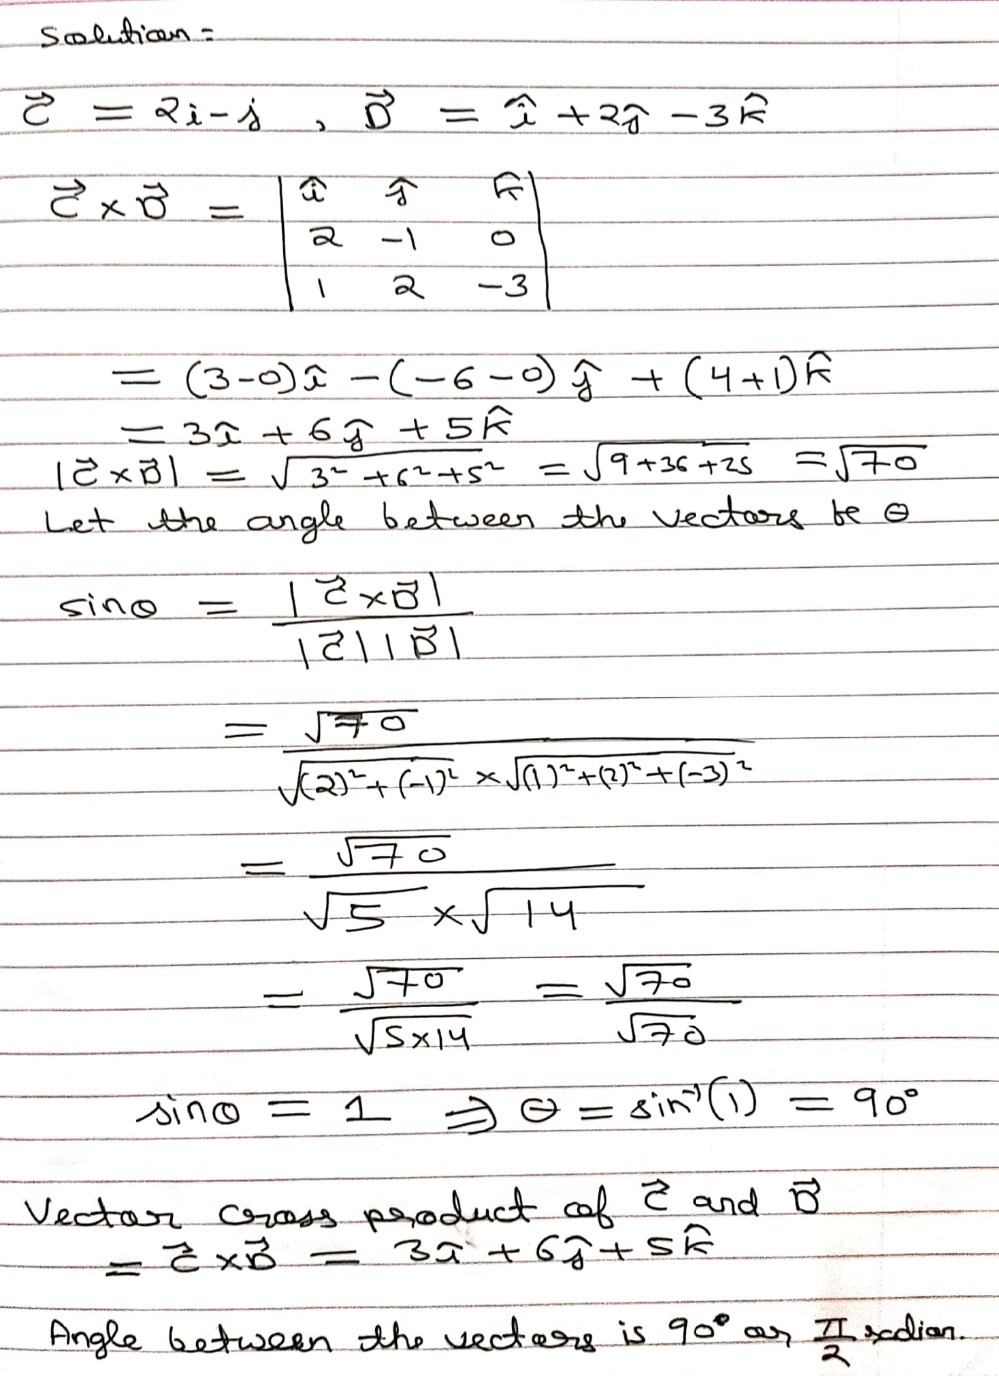 Solution =
C⃗ = 2i - j , D⃗ = î + 2ĵ - 3k̂
C⃗ × D⃗ = | î ĵ k̂ |
| 2 -1 0 |
| 1 2 -3 |
= (3-0)î - (-6-0)ĵ + (4+1)k̂
= 3î + 6ĵ + 5k̂
|C⃗ × D⃗| = √(3² + 6² + 5²) = √(9+36+25) = √70
Let the angle between the vectors be θ
sinθ = |C⃗ × D⃗| / |C⃗| |D⃗|
= √70 / √((2)² + (-1)²) × √((1)² + (2)² + (-3)²)
= √70 / √5 × √14
= √70 / √(5×14) = √70 / √70
sinθ = 1 ⇒ θ = sin⁻¹(1) = 90°
Vector cross product of C⃗ and D⃗
= C⃗ × D⃗ = 3î + 6ĵ + 5k̂
Angle between the vectors is 90° or π/2 radian.